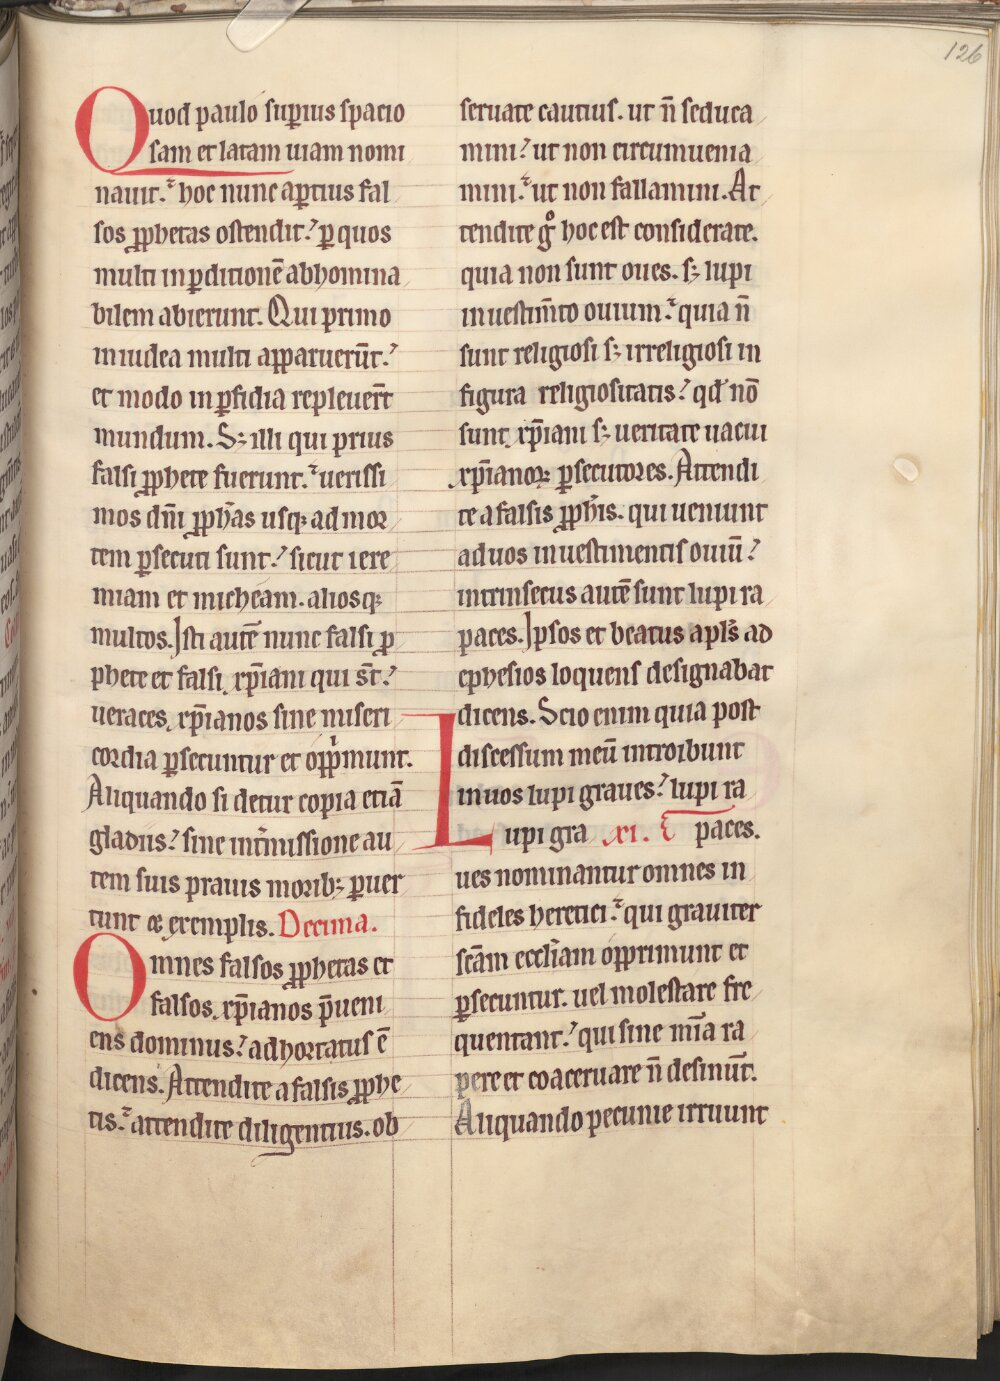 126
Quod paulo suꝑius spacio
sam et latam uiam nomi
nauit. hoc nunc aꝑtius fal
sos ꝓphetas ostendit? ꝑ quos
multi in ꝑditionē abhomina
bilem abierunt. Qui primo
in iudea multi apparuerūt?
et modo in ꝑfidia repleuerт̄
mundum. Sꝫ illi qui prius
falsi ꝓphete fuerunt. uerissi
mos dn̄i ꝓph̄as usqꝫ ad mor
tem ꝑsecuti sunt? sicut iere
miam et micheam. aliosqꝫ
multos. Isti autē nunc falsi ꝓ
phete et falsi xp̄iani qui st̄?
ueraces xp̄ianos sine miseri
cordia ꝑsecuntur et opp̍munt.
Aliquando si detur copia etiā
gladiis? sine int̍missione au
tem suis prauis moribꝫ ꝑuer
tunt & exemplis. Decima.
Omnes falsos ꝓphetas et
falsos xp̄ianos p̄ueni
ens dominus? adhortatus ē
dicens. Attendite a falsis ꝓphe
tis. attendite diligentius. ob
seruate cautius. ut n̄ seduca
mini? ut non circumuenia
mini. ut non fallamini. At
tendite gͦ hoc est considerate.
quia non sunt oues. sꝫ lupi
in uestim̄to ouium. quia n̄
sunt religiosi sꝫ irreligiosi in
figura religiositatis? qd̓ nō
sunt xp̄iani sꝫ ueritate uacui
xp̄ianoꝝ ꝑsecutores. Attendi
te a falsis ꝓph̄is. qui ueniunt
ad uos in uestimentis ouiū?
intrinsecus autē sunt lupi ra
paces. Ipsos et beatus apl̄s ad
ephesios loquens designabat
dicens. Scio enim quia post
discessum meū introibunt
in uos lupi graues? lupi ra
paces.
Lupi gra xi.
ues nominantur omnes in
fideles heretici. qui grauiter
sc̄am eccl̄iam opprimunt et
ꝑsecuntur. uel molestare fre
quentant? qui sine mīa ra
pere et coaceruare n̄ desinūt.
Aliquando pecunie irruunt